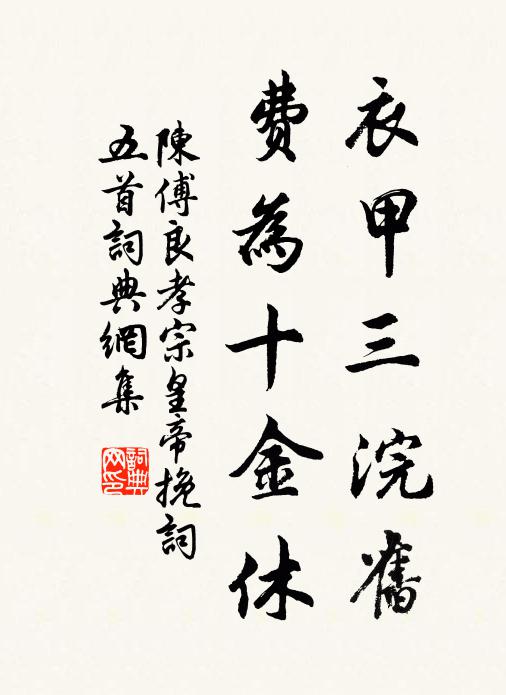 衣甲三浣舊
費為十金休
陳傅良孝宗皇帝挽詞
五首詞典網集
詞典网印